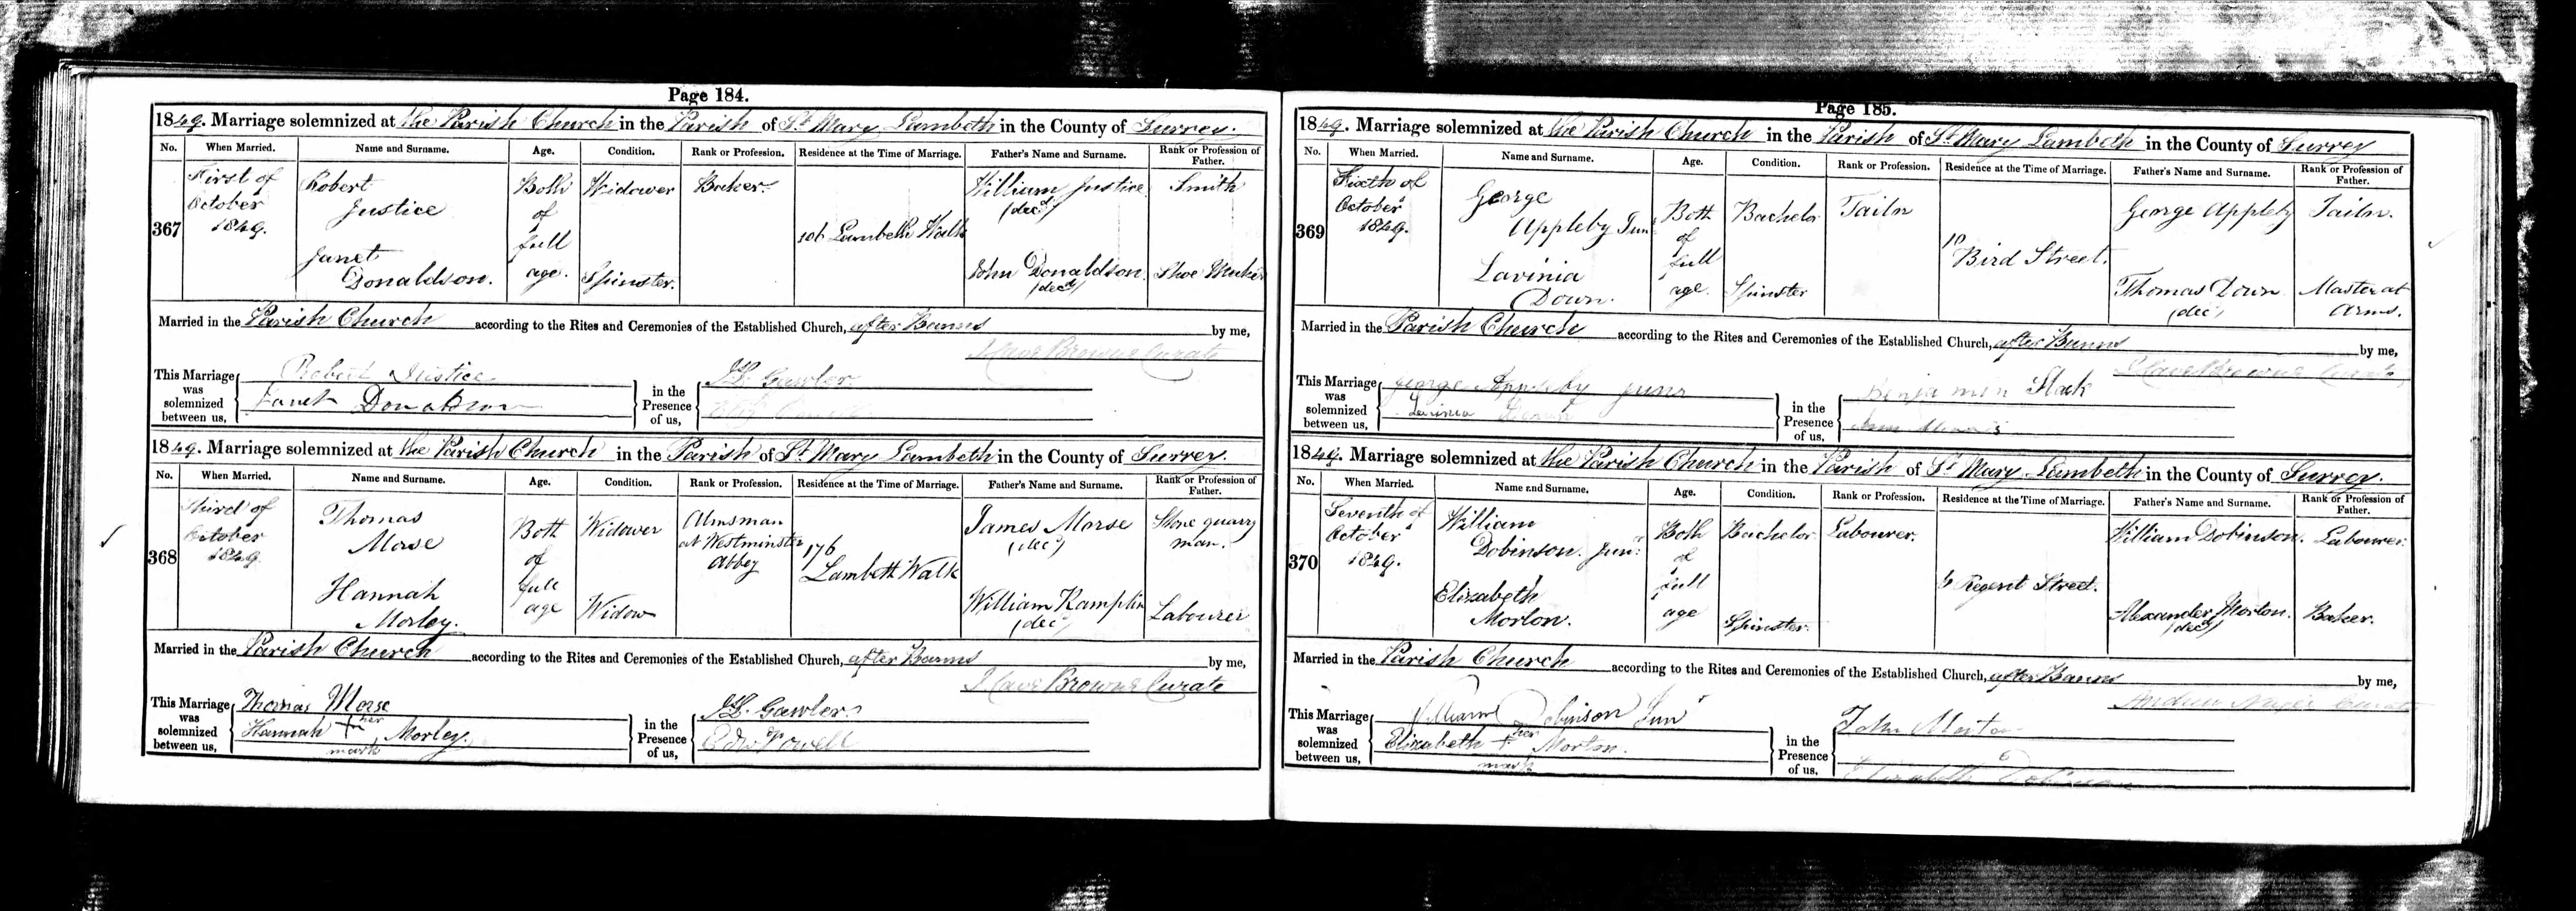 Page 184.
1849. Marriage solemnized at the Parish Church in the Parish of St Mary Lambeth in the County of Surrey.
No. When Married. Name and Surname. Age. Condition. Rank or Profession. Residence at the Time of Marriage. Father's Name and Surname. Rank or Profession of Father.
367 First of October 1849. Robert Justice Both of full age. Widower Baker. 106 Lambeth Walk William Justice (decd) Smith
Janet Donaldson. Spinster. John Donaldson. (decd) Shoe Maker
Married in the Parish Church according to the Rites and Ceremonies of the Established Church, after Banns by me,
Browne Curate
This Marriage was solemnized between us, Robert Justice Janet Donaldson in the Presence of us, Gawler
1849. Marriage solemnized at the Parish Church in the Parish of St Mary Lambeth in the County of Surrey.
No. When Married. Name and Surname. Age. Condition. Rank or Profession. Residence at the Time of Marriage. Father's Name and Surname. Rank or Profession of Father.
368 Third of October 1849. Thomas Morse Both of full age Widower Almsman at Westminster Abbey 176 Lambeth Walk James Morse (decd) Stone quarry man.
Hannah Morley. Widow William Kamplin (decd) Labourer
Married in the Parish Church according to the Rites and Ceremonies of the Established Church, after Banns by me,
Browne Curate
This Marriage was solemnized between us, Thomas Morse Hannah + her mark Morley. in the Presence of us, Gawler Edw Powell
Page 185.
1849. Marriage solemnized at the Parish Church in the Parish of St Mary Lambeth in the County of Surrey
No. When Married. Name and Surname. Age. Condition. Rank or Profession. Residence at the Time of Marriage. Father's Name and Surname. Rank or Profession of Father.
369 Sixth of October 1849. George Appleby Junr Both of full age. Bachelor Tailor 10 Bird Street. George Appleby Tailor.
Lavinia Down. Spinster Thomas Down (decd) Master at Arms.
Married in the Parish Church according to the Rites and Ceremonies of the Established Church, after Banns by me,
Browne Curate
This Marriage was solemnized between us, George Appleby junr Lavinia Down in the Presence of us, Benjamin Slack Ann
1849. Marriage solemnized at the Parish Church in the Parish of St Mary Lambeth in the County of Surrey.
No. When Married. Name and Surname. Age. Condition. Rank or Profession. Residence at the Time of Marriage. Father's Name and Surname. Rank or Profession of Father.
370 Seventh of October 1849. William Dobinson. Junr. Both of full age Bachelor. Labourer. 6 Regent Street. William Dobinson. Labourer.
Elizabeth Morton. Spinster. Alexander Morton. (decd) Baker.
Married in the Parish Church according to the Rites and Ceremonies of the Established Church, after Banns by me,
Curate
This Marriage was solemnized between us, William Dobinson Junr Elizabeth + her mark Morton. in the Presence of us, John Morton Elizabeth Dobinson